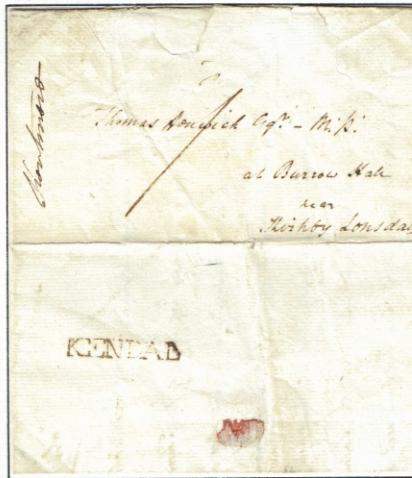 To
Thomas Fenwick Esqr. - M.P.
at Burrow Hall
near
Kirkby Lonsdale
KENDAL